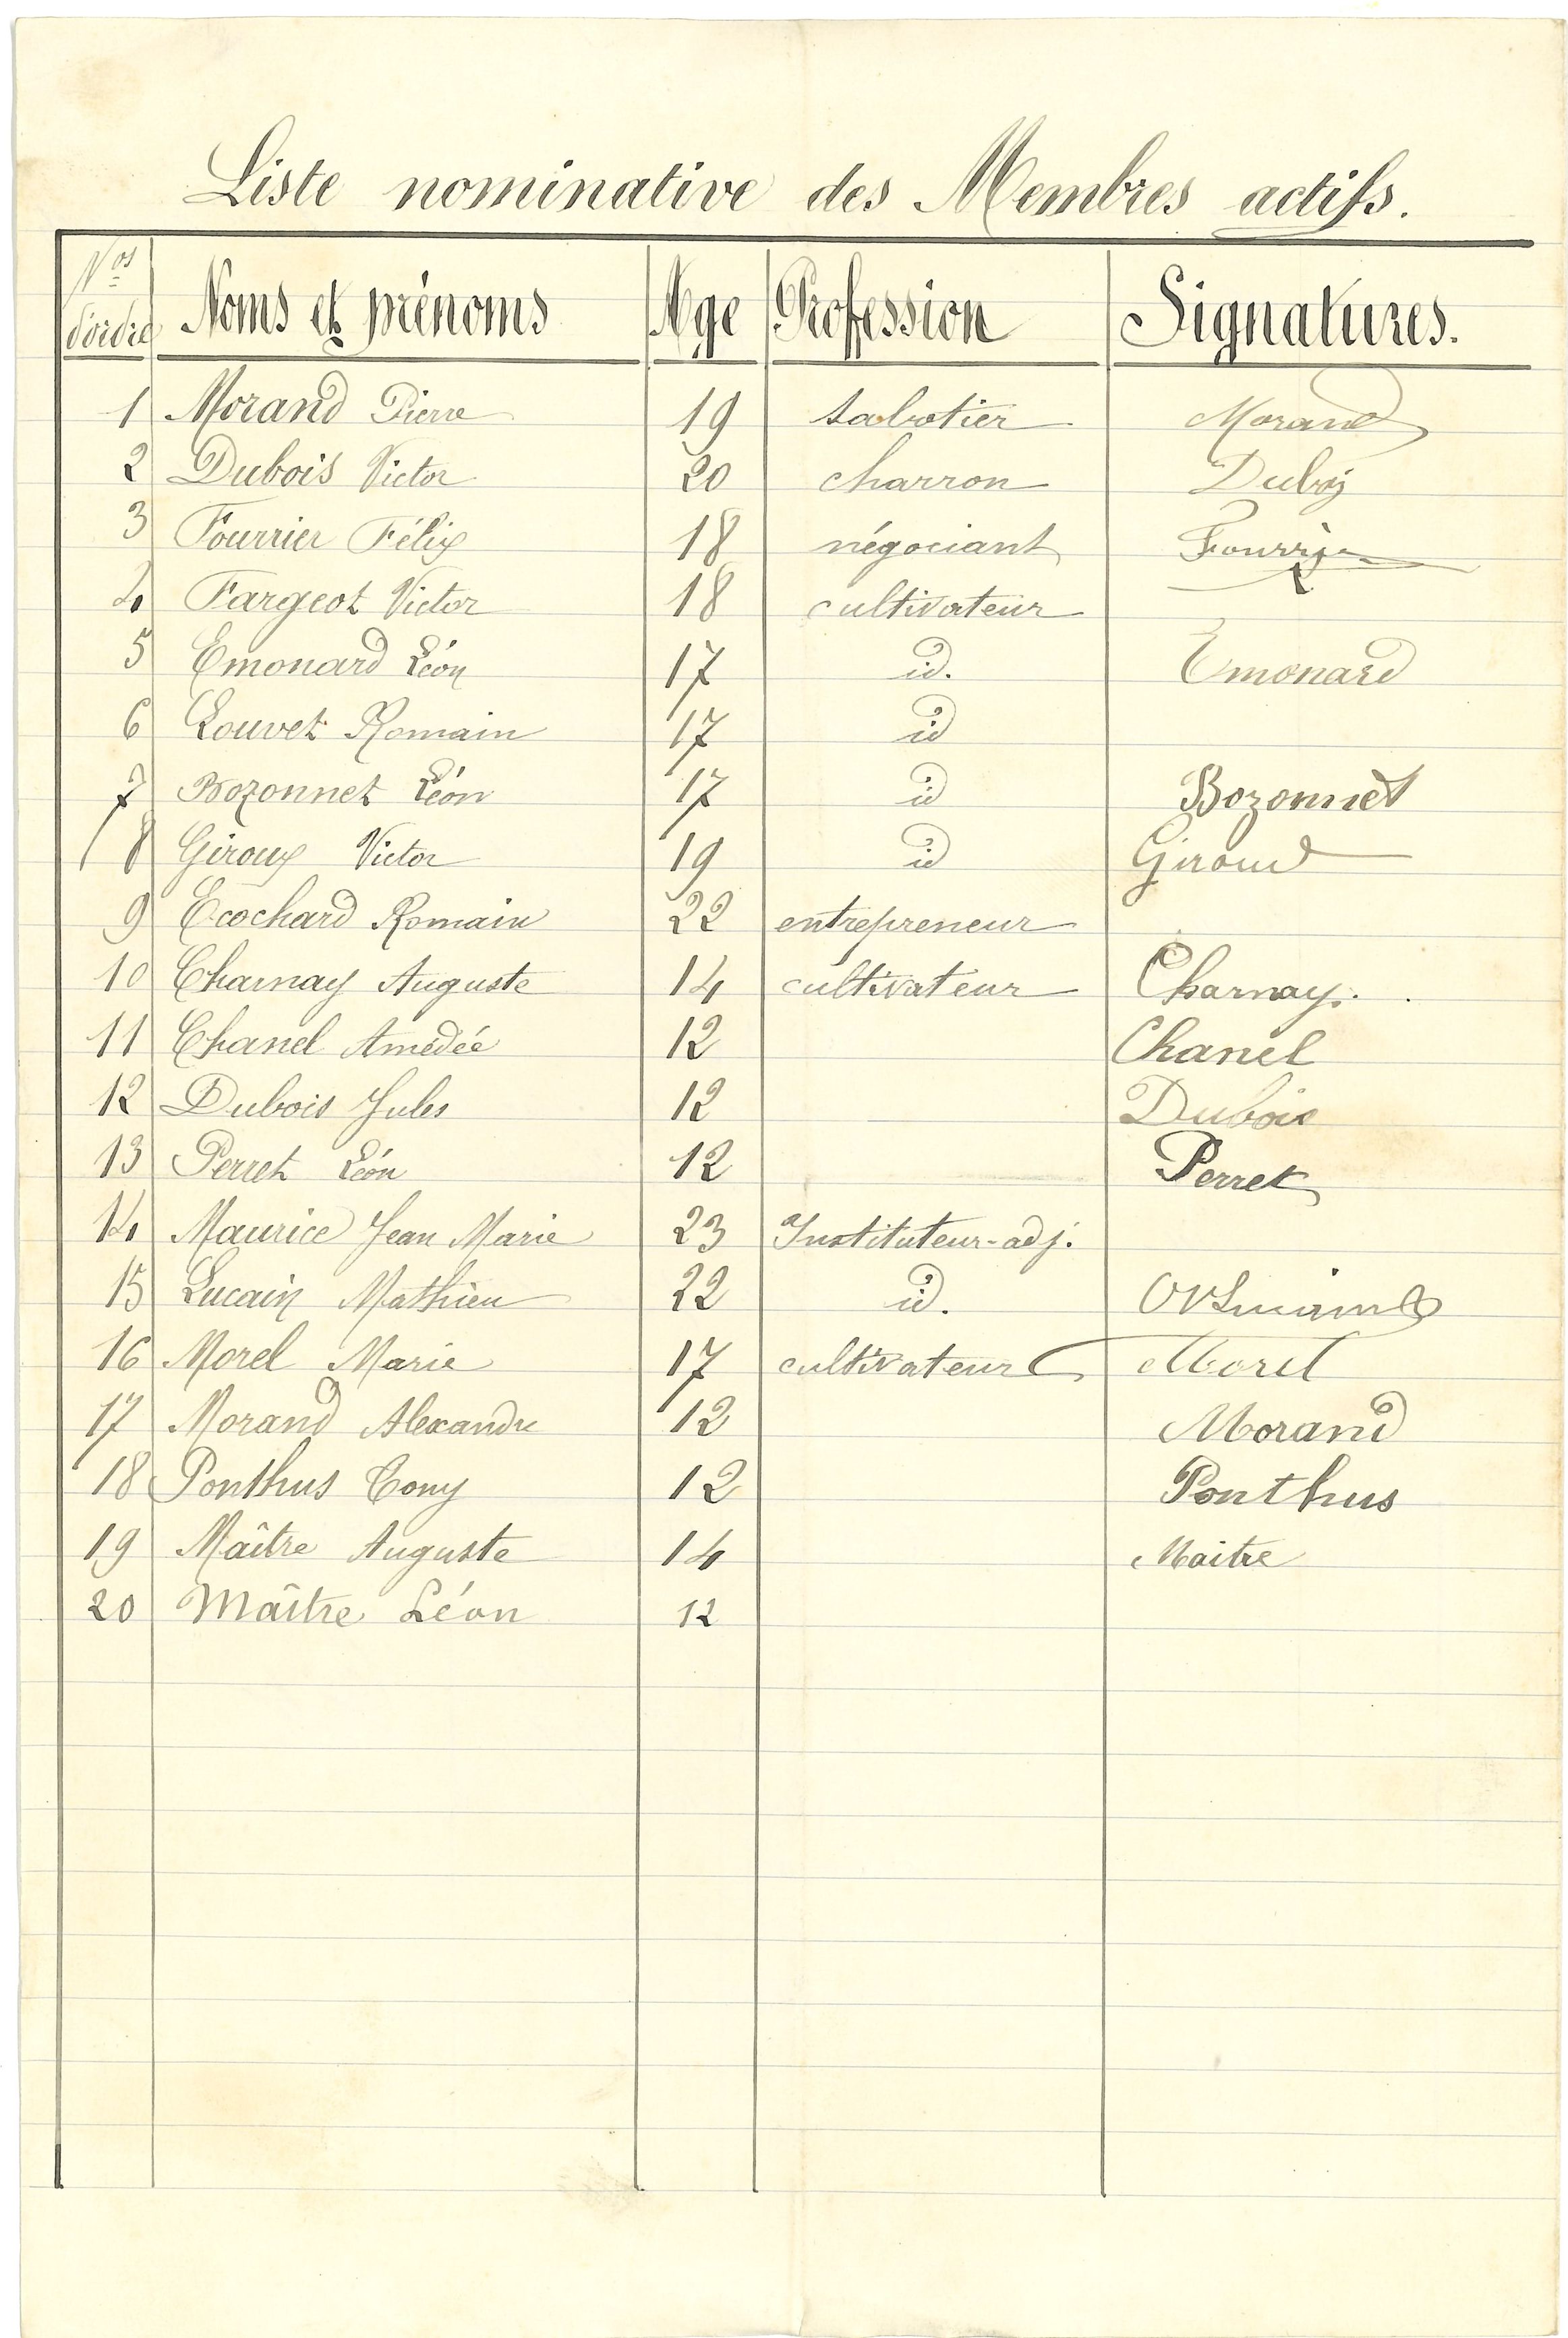 Liste nominative des Membres actifs.
Nos d'ordre Noms et prénoms Age Profession Signatures.
1 Morand Pierre 19 sabotier Morand
2 Dubois Victor 20 charron Dubois
3 Fourrier Félix 18 négociant Fourrier
4 Fargeot Victor 18 cultivateur
5 Emonard Léon 17 id. Emonard
6 Louvet Romain 17 id
7 Bozonnet Léon 17 id Bozonnet
8 Giroux Victor 19 id Giroud
9 Ecochard Romain 22 entrepreneur
10 Charnay Auguste 14 cultivateur Charnay.
11 Chanel Amédée 12 Chanel
12 Dubois Jules 12 Dubois
13 Perret Léon 12 Perret
14 Maurice Jean Marie 23 Instituteur-adj.
15 Lucain Mathieu 22 id.
16 Morel Marie 17 cultivateur Morel
17 Morand Alexandre 12 Morand
18 Ponthus Tony 12 Ponthus
19 Maître Auguste 14 Maitre
20 Maître Léon 12